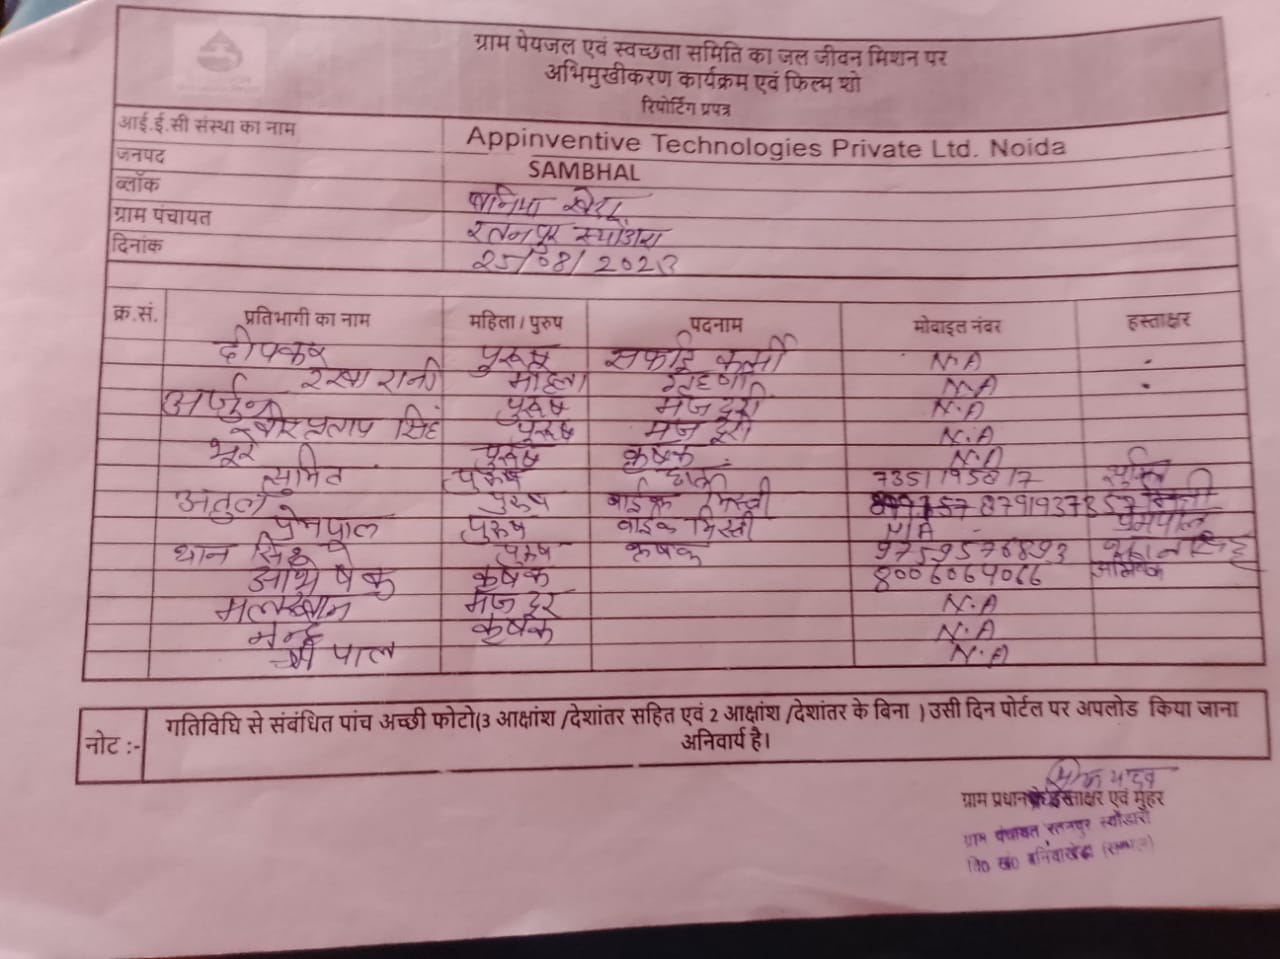 ग्राम पेयजल एवं स्वच्छता समिति का जल जीवन मिशन पर
अभिमुखीकरण कार्यक्रम एवं फिल्म शो
रिपोर्टिंग प्रपत्र
आई.ई.सी संस्था का नाम Appinventive Technologies Private Ltd. Noida
जनपद SAMBHAL
ब्लॉक बनिया खेड़ा
ग्राम पंचायत रतनपुर स्योंडारा
दिनांक 25/08/2023
क्र.सं. प्रतिभागी का नाम महिला / पुरुष पदनाम मोबाइल नंबर हस्ताक्षर
दीपकर पुरूष सफाई कर्मी N.A
रेखा रानी महिला ग्रहणी N.A
अर्जुन पुरूष मजदूरी N.A
वीर प्रताप सिंह पुरूष मजदूरी N.A
भूरे पुरूष कृषक N.A
सुमित पुरूष 7351195817 सुमित
अतुल पुरुष बाईक मिस्त्री
प्रेमपाल पुरुष बाईक मिस्त्री N.A प्रेमपाल
थान सिंह पुरुष कृषक 9759576893 थान सिंह
अभिषेक कृषक 8006064066 अभिषेक
मलखान मजदूर N.A
नन्हू कृषक N.A
पाल N.A
नोट :- गतिविधि से संबंधित पांच अच्छी फोटो(3 आक्षांश /देशांतर सहित एवं 2 आक्षांश /देशांतर के बिना ) उसी दिन पोर्टल पर अपलोड किया जाना
अनिवार्य है।
यादव
ग्राम प्रधान के हस्ताक्षर एवं मुहर
ग्राम पंचायत रतनपुर स्योंडारा
वि0 ख0 बनियाखेड़ा (सम्भल)